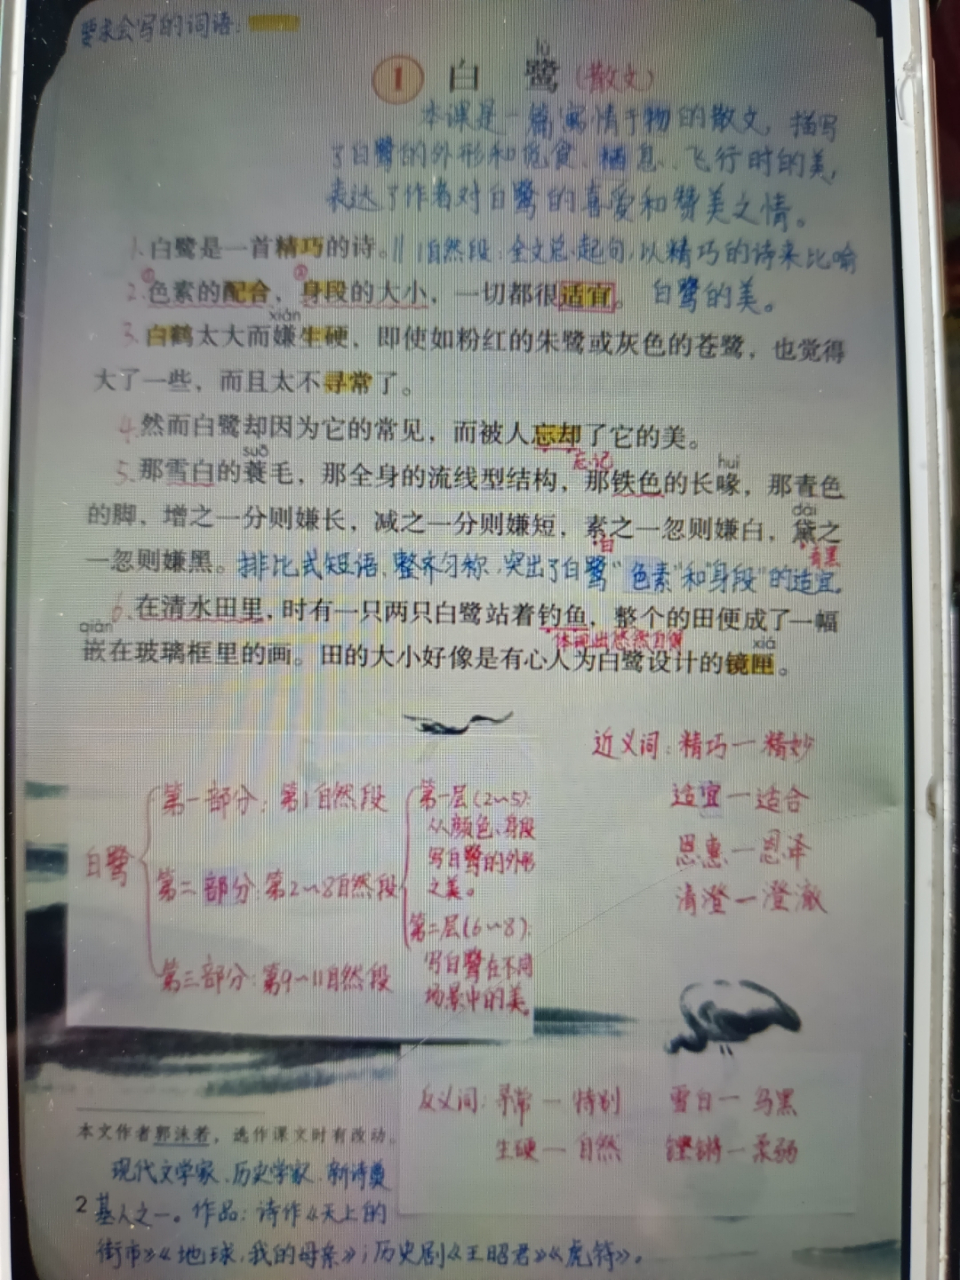 要求会写的词语：
lù
1 白 鹭（散文）
本课是一篇寓情于物的散文，描写
了白鹭的外形和觅食、栖息、飞行时的美，
表达了作者对白鹭的喜爱和赞美之情。
1.白鹭是一首精巧的诗。// 1自然段：全文总起句，以精巧的诗来比喻
① ②
2.色素的配合，身段的大小，一切都很适宜。 白鹭的美。
xián
3.白鹤太大而嫌生硬，即使如粉红的朱鹭或灰色的苍鹭，也觉得
大了一些，而且太不寻常了。
4.然而白鹭却因为它的常见，而被人忘却了它的美。
suō 忘记 huì
5.那雪白的蓑毛，那全身的流线型结构，那铁色的长喙，那青色
dài
的脚，增之一分则嫌长，减之一分则嫌短，素之一忽则嫌白，黛之
白 青黑
一忽则嫌黑。排比式短语，整齐匀称，突出了白鹭“色素”和“身段”的适宜。
6.在清水田里，时有一只两只白鹭站着钓鱼，整个的田便成了一幅
qiàn 体现出悠然自得 xiá
嵌在玻璃框里的画。田的大小好像是有心人为白鹭设计的镜匣。
近义词：精巧—精妙
适宜—适合
恩惠—恩泽
清澄—澄澈
白鹭
第一部分：第1自然段
第二部分：第2~8自然段
第一层（2~5）：
从颜色、身段
写白鹭的外形
之美。
第二层（6~8）：
写白鹭在不同
场景中的美。
第三部分：第9~11自然段
反义词：寻常—特别 雪白—乌黑
生硬—自然 铿锵—柔弱
本文作者郭沫若，选作课文时有改动。
现代文学家、历史学家、新诗奠
2 基人之一。作品：诗作《天上的
街市》《地球，我的母亲》；历史剧《王昭君》《虎符》。